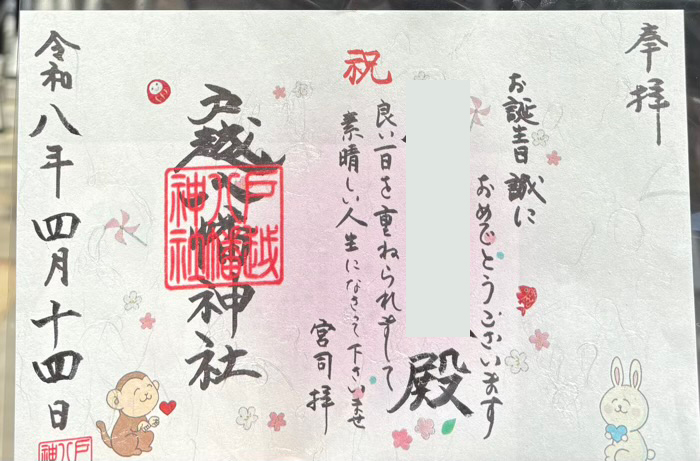 奉拝
お誕生日誠に
おめでとうございます
殿
祝
良い一日を重ねられまして
素晴しい人生になさって下さいませ
宮司 拝
戸越八幡神社
戸越
八幡
神社
令和八年四月十四日
戸
八
神